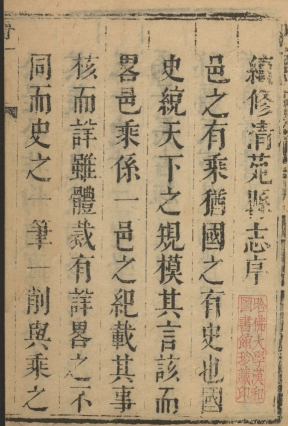 續修清苑縣志序
邑之有乘猶國之有史也國
史統天下之規模其言該而
畧邑乘係一邑之紀載其事
核而詳雖體裁有詳畧之不
同而史之一筆一削與乘之
哈佛大學漢和
圖書館珍藏印